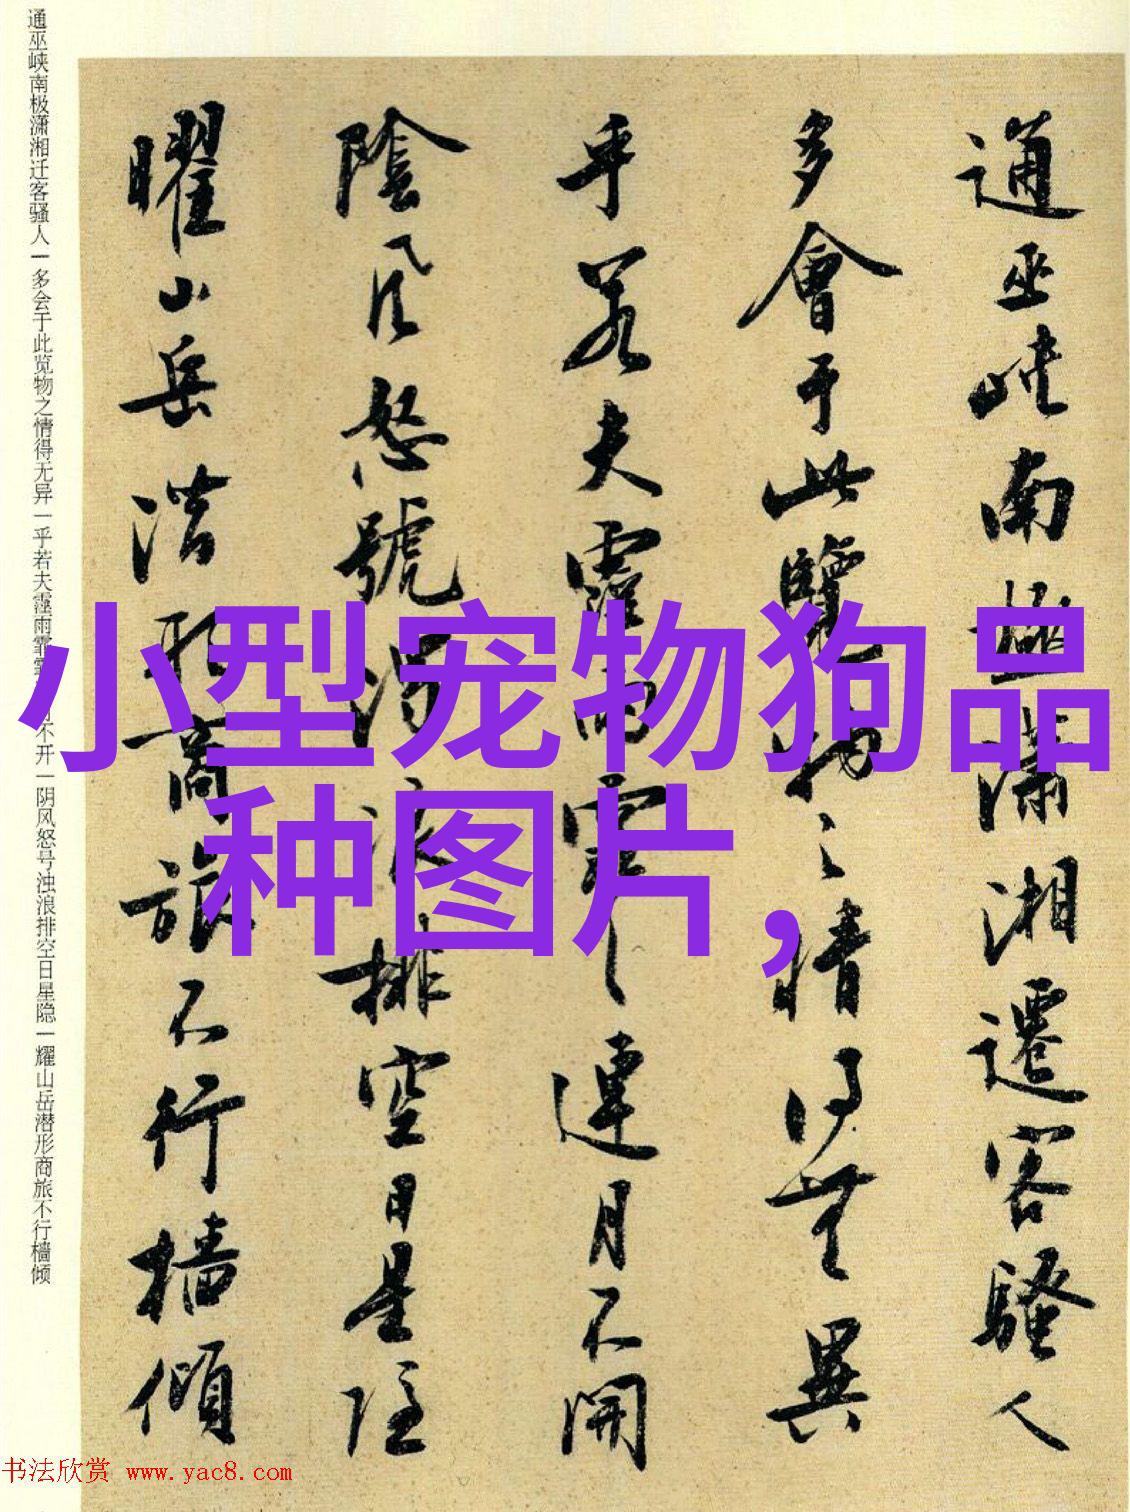 通巫峡南极潇湘迁客骚人一多会于此览物之情得无异一乎若夫霪雨霏霏
不开一阴风怒号浊浪排空日星隐一耀山岳潜形商旅不行樯倾
通巫峽南極潇湘遷客騷人
多會于此覽物之情得無異
乎若夫霪雨霏〻連月不開
陰風怒號濁浪排空日星隱
曜山岳潜形商旅不行檣傾
小型宠物狗品
种图片,
书法欣赏 www.yac8.com